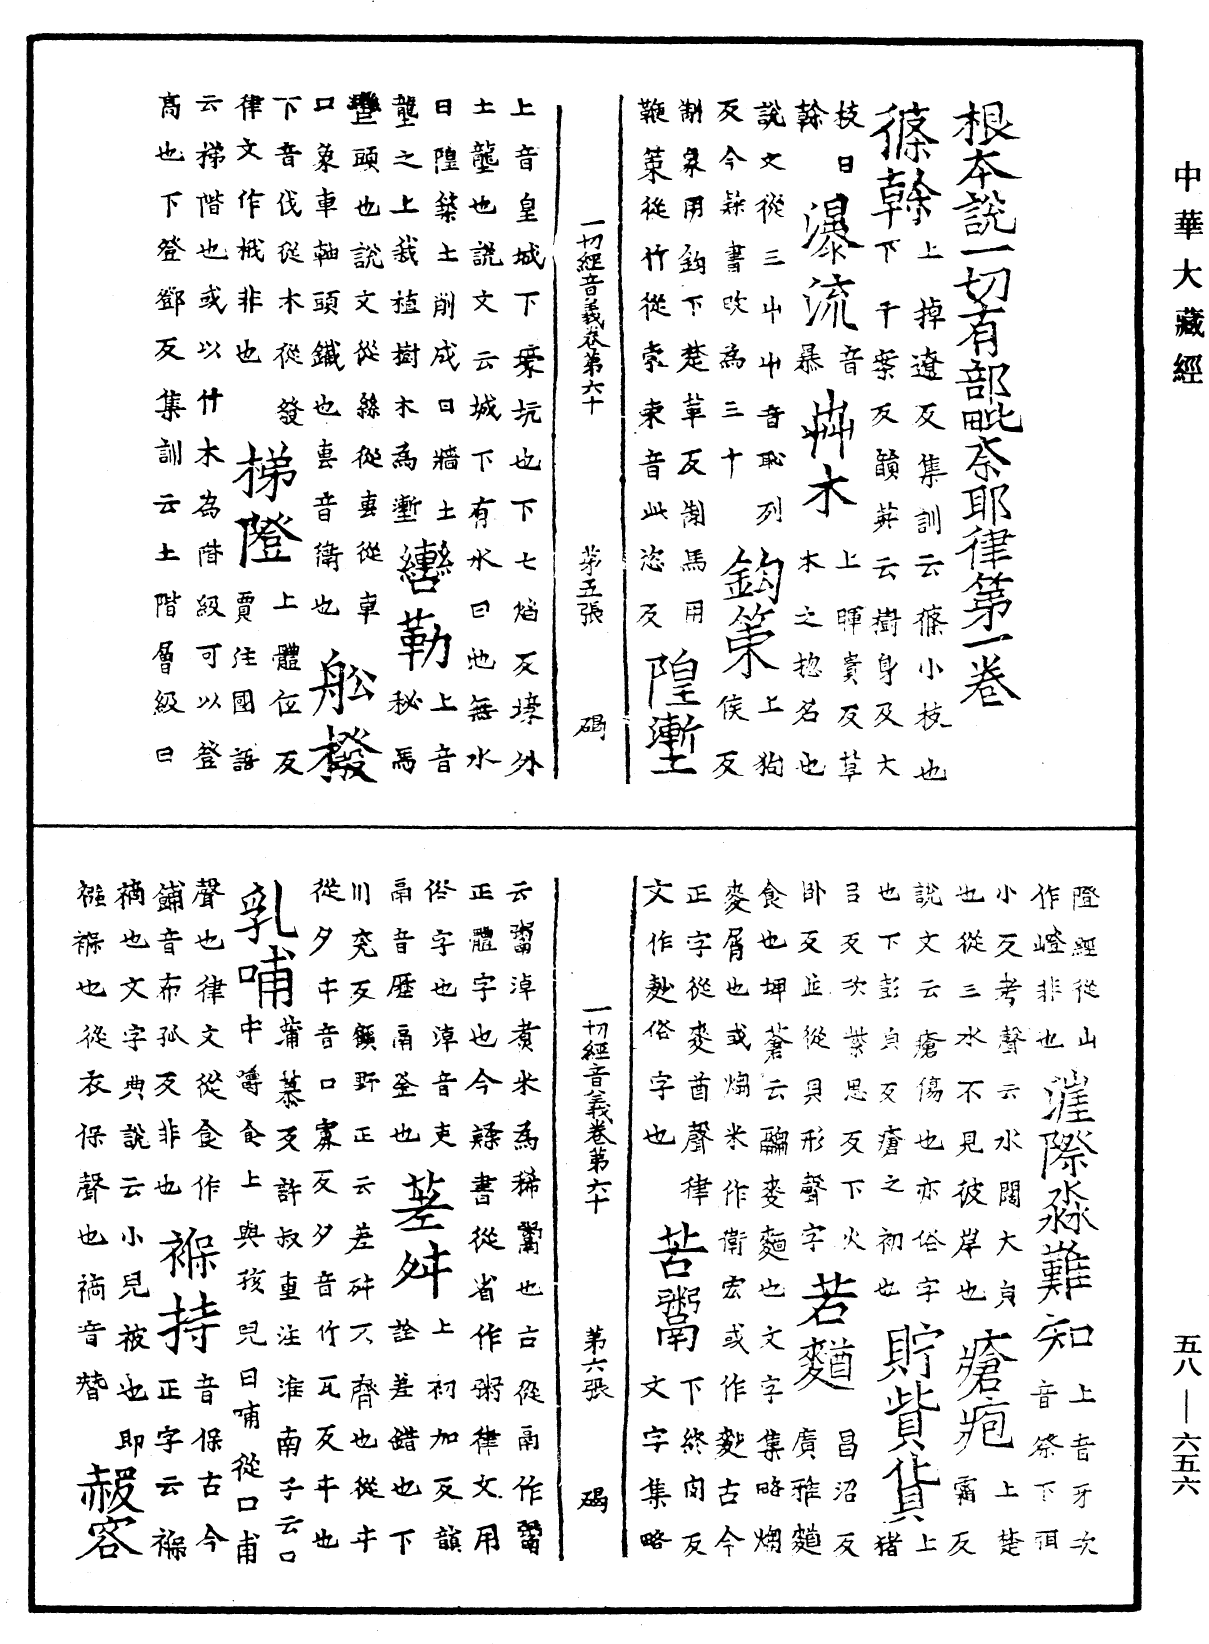 中華大藏經
根本說一切有部毗奈耶律第一卷
篠幹上掉遼反集訓云篠小枝也
下干案反韻英云樹身及大
枝曰
幹瀑流音暴艸木上暉貴反草木之揔名也
說文從三屮屮音恥列
反今隸書改為三十鉤策上狗侯反
制象用鉤下楚革反制馬用
鞭策從竹從朿朿音此恣反隍壍
一切經音義卷第六十 第五張 碣
上音皇城下㽹坑也下七焰反壕外
土壟也說文云城下有水曰池無水
曰隍築土削成曰牆土
壟之上栽植樹木為壍轡勒上音秘馬
轡頭也說文從絲從軎從車
口象車軸頭鐵也軎音衛也舩橃
下音伐從木從發
律文作栰非也梯隥上體伍反賈注國語
云梯階也或以什木為階級可以登
高也下登鄧反集訓云土階層級曰
隥經從山
作嶝非也涯際淼難知上音牙次音祭下弭
小反考聲云水闊大皃
也從三水不見彼岸也瘡疱上楚霜反
說文云瘡傷也亦俗字
也下彭皃反瘡之初也貯貲貨上猪
呂反次紫思反下火
卧反並從貝形聲字苦麨昌沼反廣雅麨
食也埤蒼云麨麥麵也文字集略煼
麥屑也或煼米作衛宏或作麨古今
正字從麥酋聲律
文作麨俗字也苦鬻下終肉反文字集略
一切經音義卷第六十 第六張 碣
云鬻淖煑米為稀鬻也古從鬲作鬻
正體字也今隸書從省作粥律文用
俗字也淖音
鬲音歷鬲釜也差舛上初加反韻詮差錯也下
川兖反顧野王云差舛不齊也從㐄
從夕㐄音口寡反夕音竹瓦反㐄也
乳哺蒲慕反許叔重注淮南子云口
中嚼食上與孩兒曰哺從口甫
聲也律文從食作
餔音布孤反非也褓持音保古今正字云褓
襁也文字典說云小兒被也即
襁褓也從衣保聲也䙀音替赧容
五八—六五六